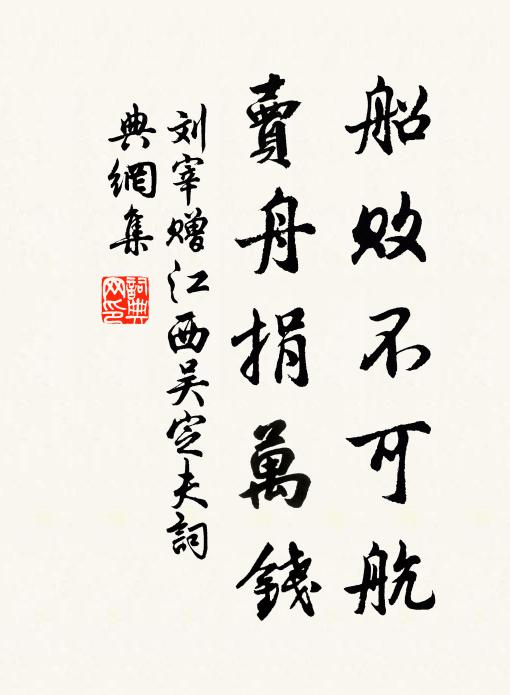 船敗不可航
賣舟捐萬錢
刘宰赠江西吴定夫詞
典網集
詞典
网印